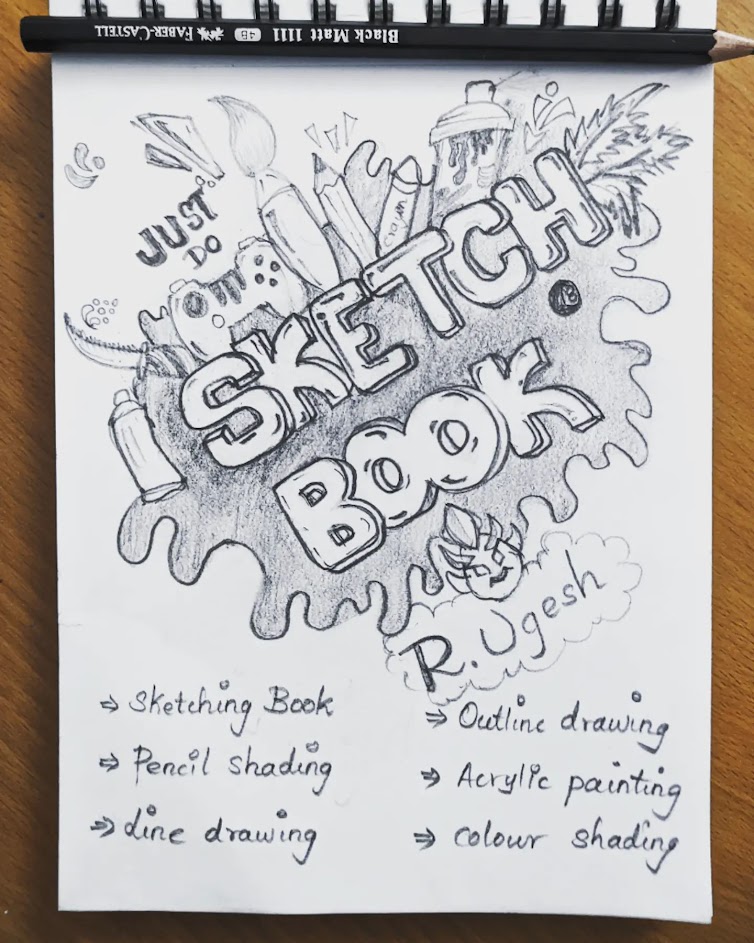 Black Matt 1111 4B FABER-CASTELL
JUST
DO
crayon
SKETCH
BOOK
R. Ugesh
⇒ Sketching Book
⇒ Pencil shading
⇒ Line drawing
⇒ Outline drawing
⇒ Acrylic painting
⇒ Colour shading